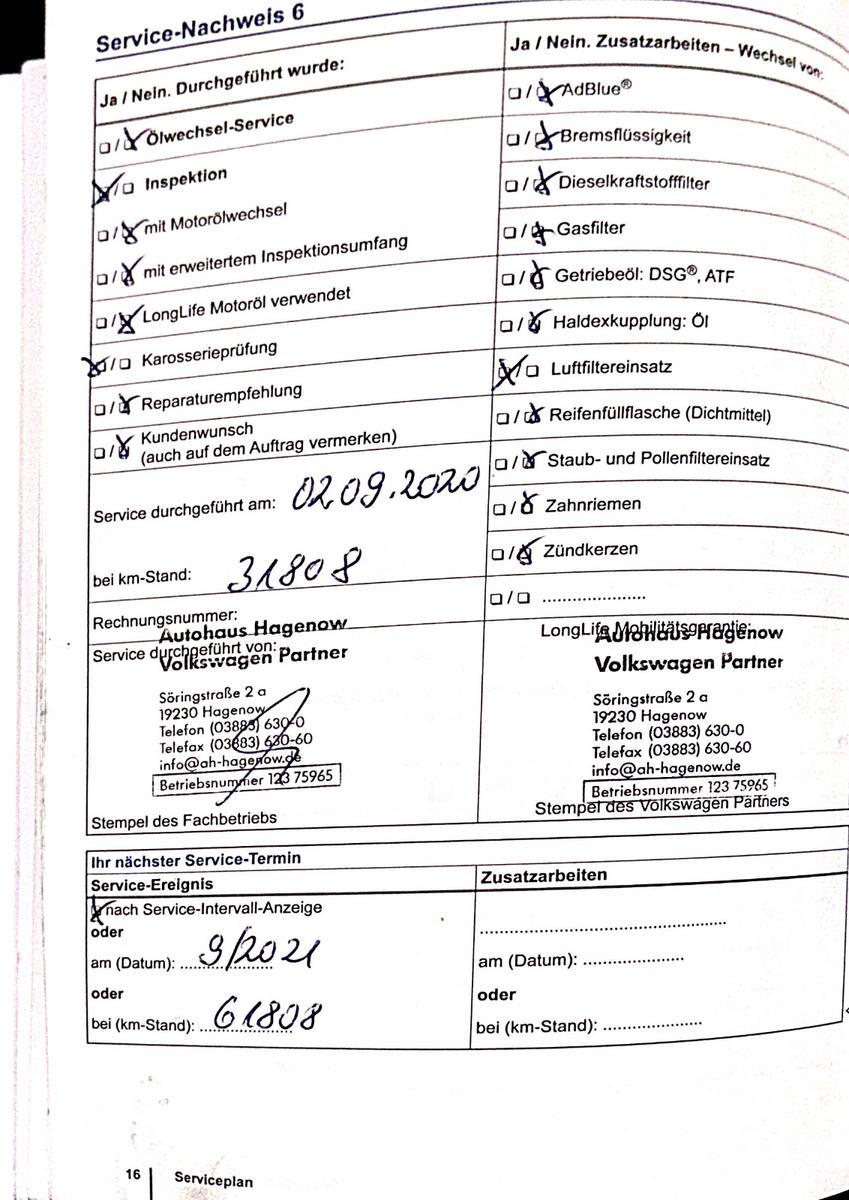 Service-Nachweis 6
Ja / Nein. Durchgeführt wurde:
☐ / ☒ Ölwechsel-Service
☒ / ☐ Inspektion
☐ / ☒ mit Motorölwechsel
☐ / ☒ mit erweitertem Inspektionsumfang
☐ / ☒ LongLife Motoröl verwendet
☒ / ☐ Karosserieprüfung
☐ / ☒ Reparaturempfehlung
☐ / ☒ Kundenwunsch
(auch auf dem Auftrag vermerken)
Service durchgeführt am: 02.09.2020
bei km-Stand: 31808
Rechnungsnummer:
Service durchgeführt von:
Autohaus Hagenow
Volkswagen Partner
Söringstraße 2 a
19230 Hagenow
Telefon (03883) 630-0
Telefax (03883) 630-60
info@ah-hagenow.de
Betriebsnummer 123 75965
Stempel des Fachbetriebs
Ja / Nein. Zusatzarbeiten – Wechsel von:
☐ / ☒ AdBlue®
☐ / ☒ Bremsflüssigkeit
☐ / ☒ Dieselkraftstofffilter
☐ / ☒ Gasfilter
☐ / ☒ Getriebeöl: DSG®, ATF
☐ / ☒ Haldexkupplung: Öl
☒ / ☐ Luftfiltereinsatz
☐ / ☒ Reifenfüllflasche (Dichtmittel)
☐ / ☒ Staub- und Pollenfiltereinsatz
☐ / ☒ Zahnriemen
☐ / ☒ Zündkerzen
☐ / ☐ ......................
LongLife Mobilitätsgarantie:
Autohaus Hagenow
Volkswagen Partner
Söringstraße 2 a
19230 Hagenow
Telefon (03883) 630-0
Telefax (03883) 630-60
info@ah-hagenow.de
Betriebsnummer 123 75965
Stempel des Volkswagen Partners
Ihr nächster Service-Termin
Service-Ereignis
☒ nach Service-Intervall-Anzeige
oder
am (Datum): 9/2021
oder
bei (km-Stand): 61808
Zusatzarbeiten
......................................................
am (Datum): ......................
oder
bei (km-Stand): ......................
16
Serviceplan